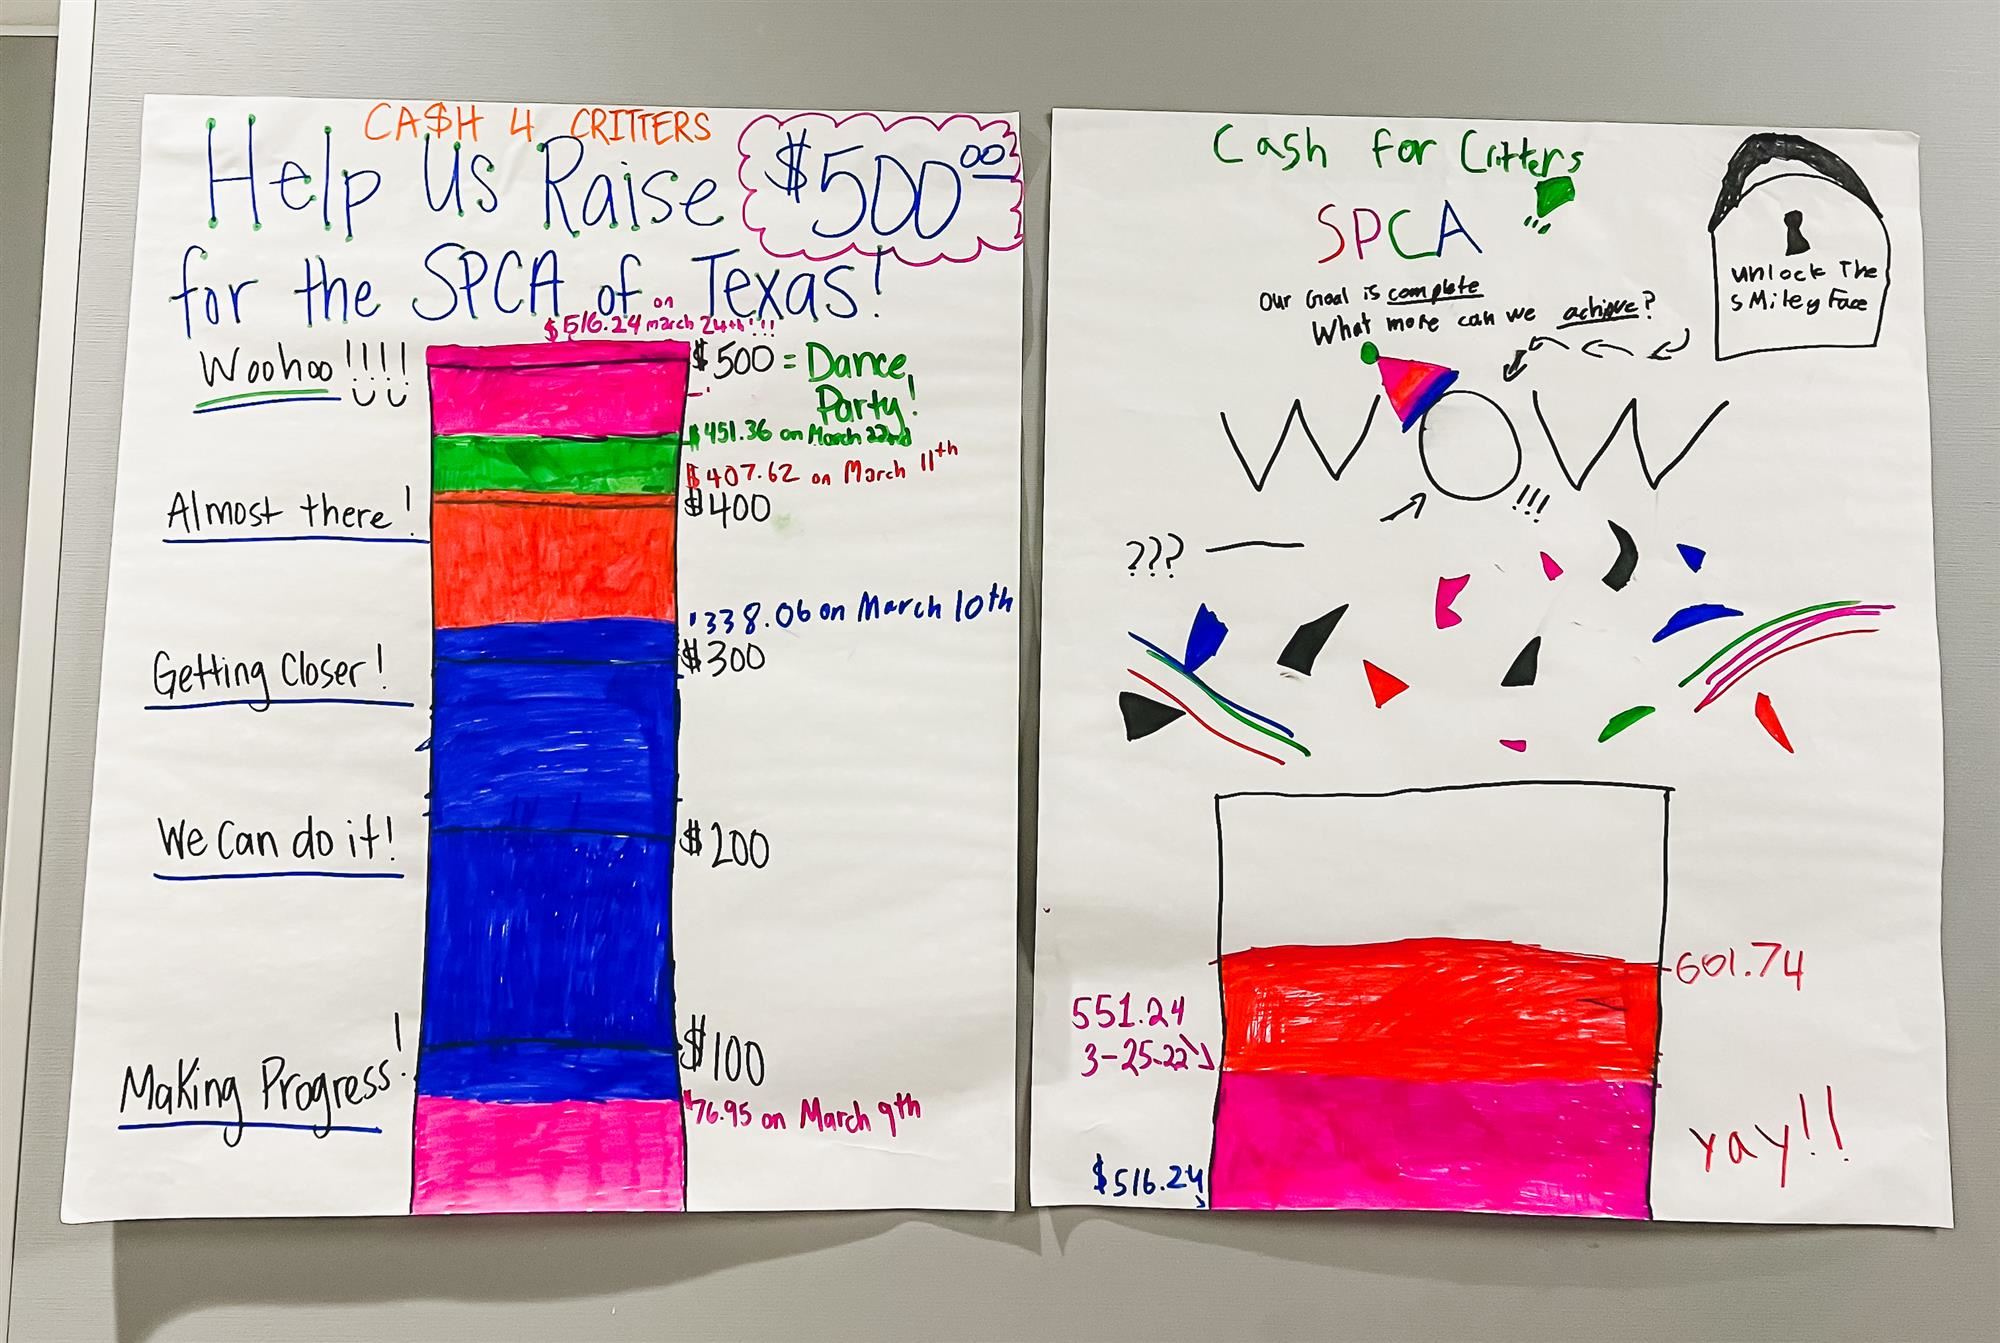 CA$H 4 CRITTERS
Help Us Raise $500.00
for the SPCA of Texas!
$516.24 on march 24th!!!
Woohoo!!!!
$500 = Dance
Party!
$451.36 on March 22nd
$407.62 on March 11th
$400
Almost there!
$338.06 on March 10th
$300
Getting Closer!
$200
We Can do it!
$100
Making Progress!
$76.95 on March 9th
Cash for Critters
SPCA
Our Goal is complete
What more can we achieve?
unlock The
sMiley Face
WOW
!!!
???
601.74
551.24
3-25-22
$516.24
yay!!